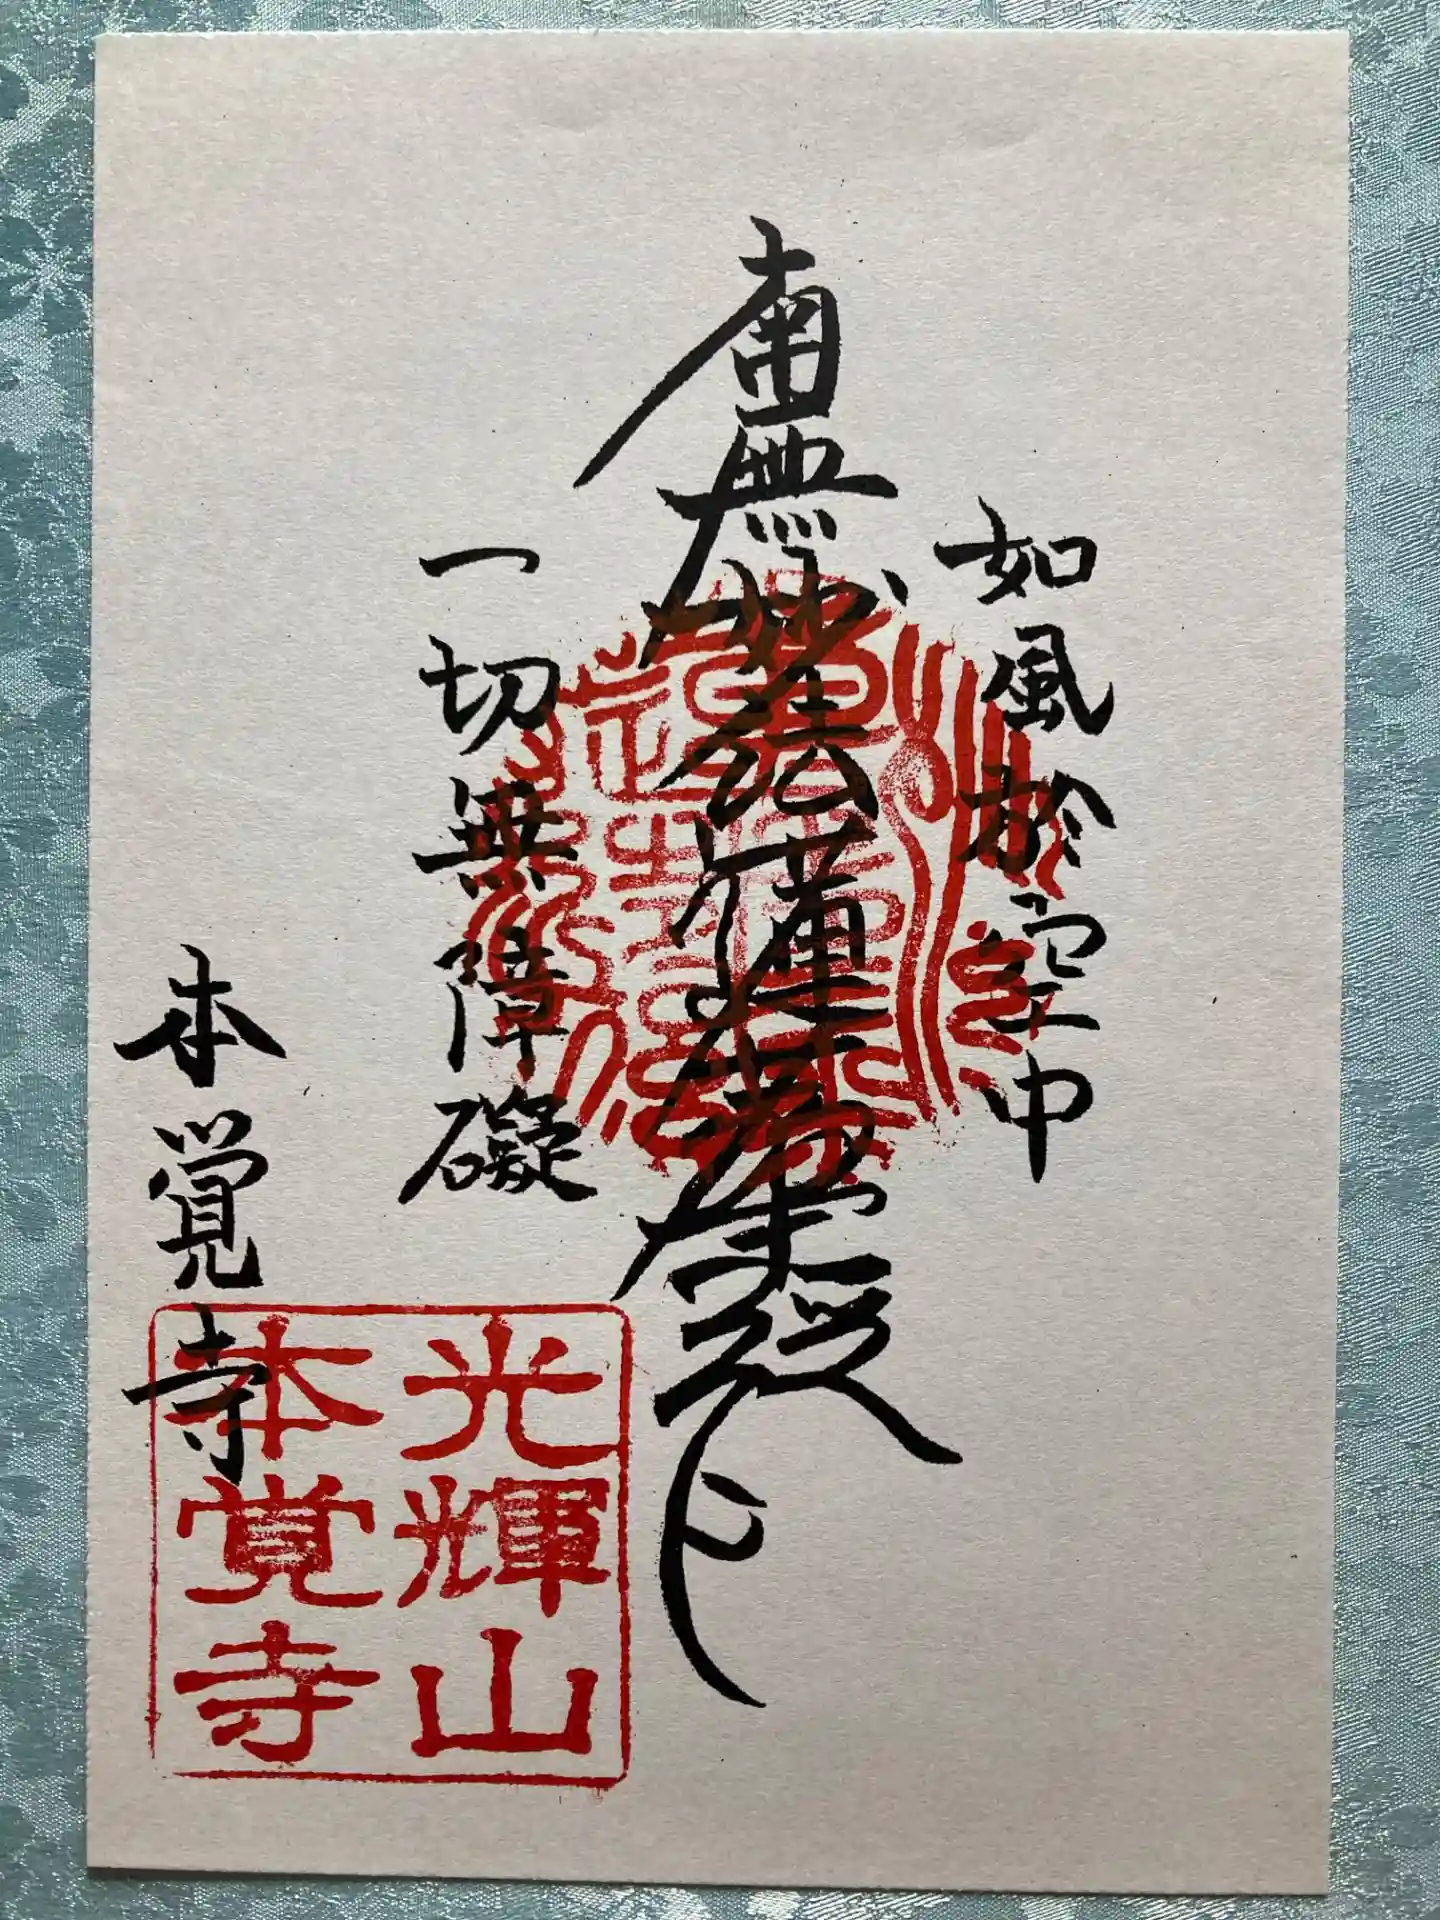 如風於空中
南無妙法蓮華経
一切無障礙
本覺寺
光輝山
本覚寺